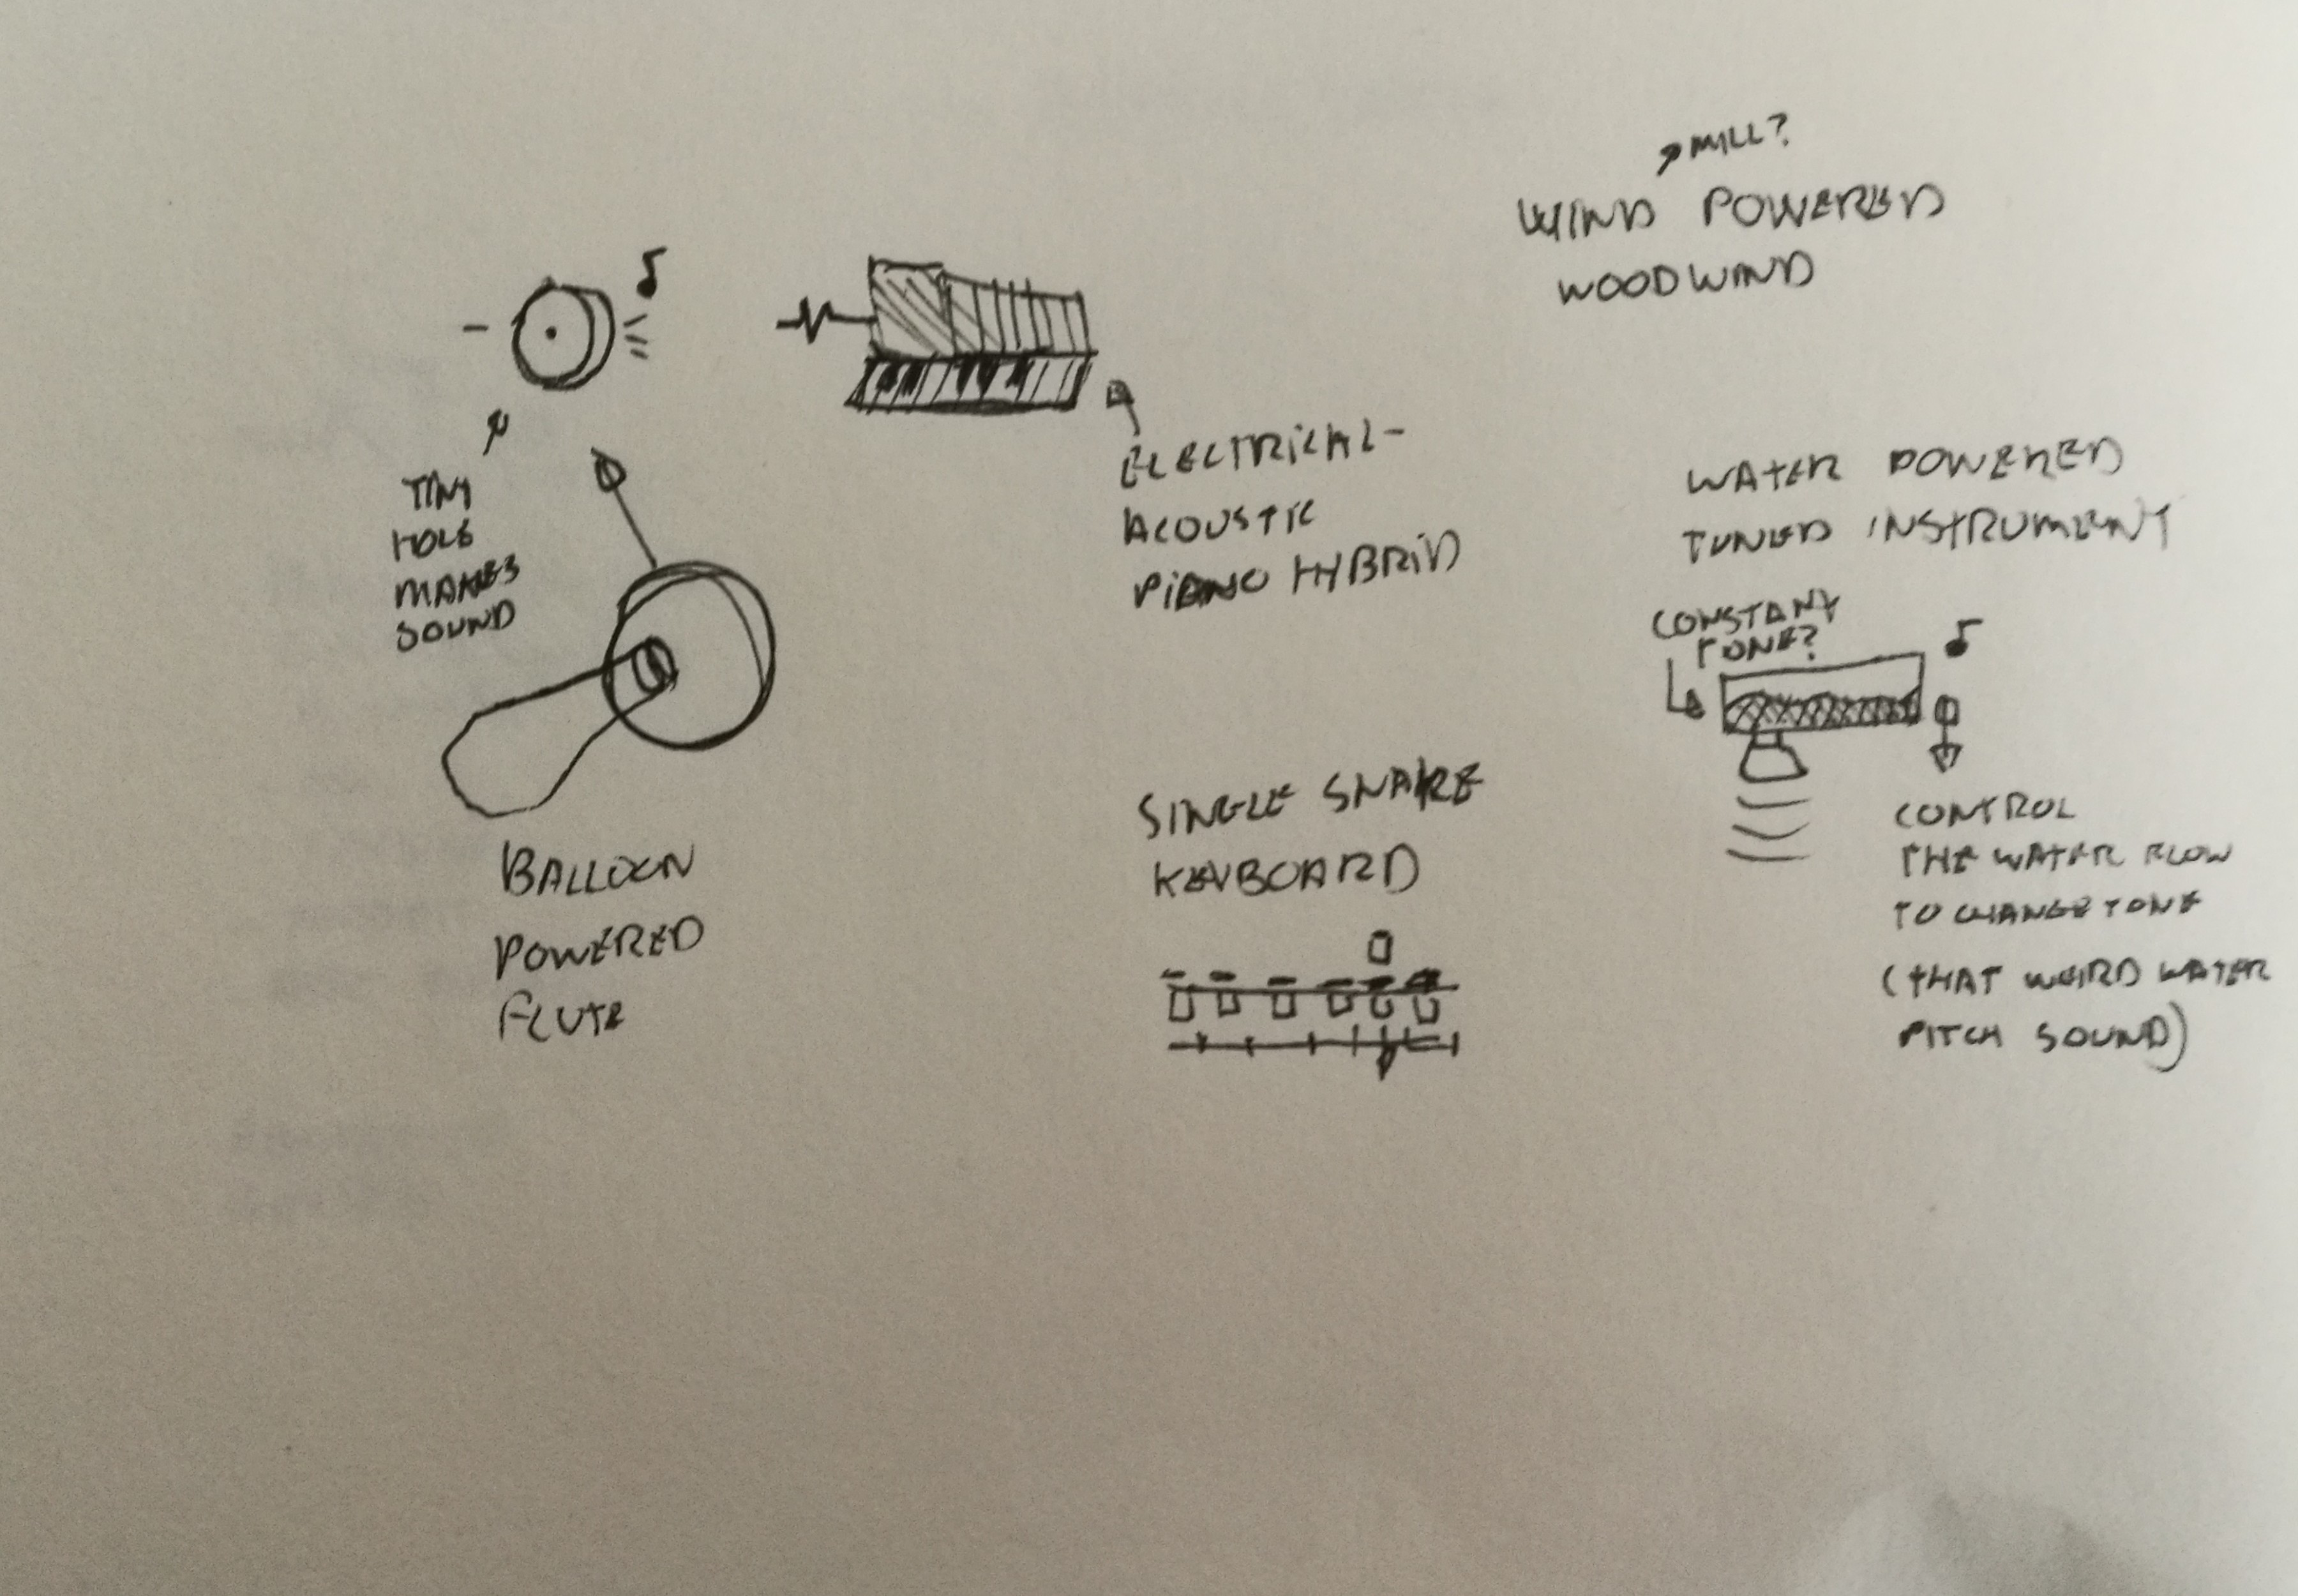 TINY
HOLE
MAKES
SOUND
BALLOON
POWERED
FLUTE
ELECTRICAL-
ACOUSTIC
PIANO HYBRID
MILL?
WIND POWERED
WOODWIND
SINGLE SNARE
KEYBOARD
WATER POWERED
TUNED INSTRUMENT
CONSTANT
TONE?
CONTROL
THE WATER FLOW
TO CHANGE TONE
(THAT WEIRD WATER
PITCH SOUND)